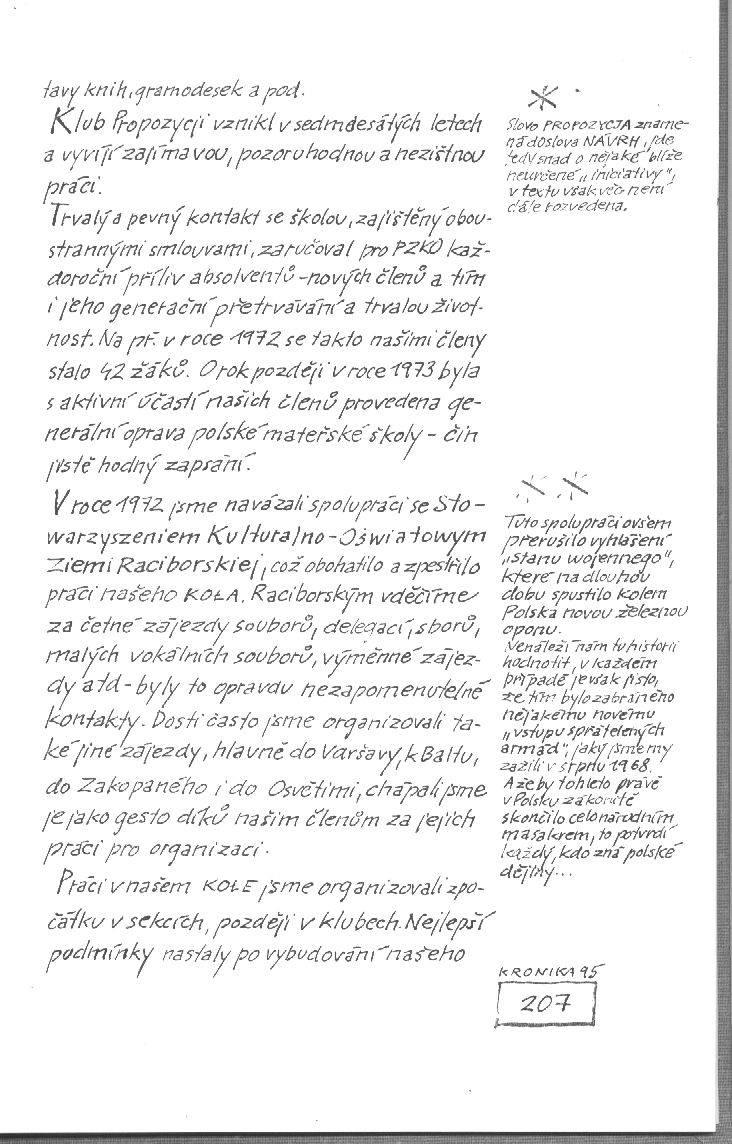 tavy knih, gramodesek a pod.
Klub Propozycji vznikl v sedmdesátých letech
a vyvíjí zajímavou, pozoruhodnou a nezištnou
práci.
Trvalý a pevný kontakt se školou, zajištěný obou-
strannými smlouvami, zaručoval pro PZKO kaž-
doroční příliv absolventů - nových členů a tím
i jeho generační přetrvávání a trvalou život-
nost. Na př. v roce 1972 se takto našimi členy
stalo 42 žáků. O rok později v roce 1973 byla
s aktivní účastí našich členů provedena ge-
nerální oprava polské mateřské školy - čin
jistě hodný zapsání.
V roce 1972 jsme navázali spolupráci se Sto-
warzyszeniem Kulturalno-Oświatowym
Ziemi Raciborskiej, což obohatilo a zpestřilo
práci našeho KOŁA. Raciborským vděčíme
za četné zájezdy souborů, delegací, sborů,
malých vokálních souborů, výměnné zájez-
dy atd - byly to opravdu nezapomenutelné
kontakty. Dosti často jsme organizovali ta-
ké jiné zájezdy, hlavně do Varšavy, k Baltu,
do Zakopaného i do Osvětimi, chápali jsme
je jako gesto díků našim členům za jejich
práci pro organizaci.
Práci v našem KOLE jsme organizovali zpo-
čátku v sekcích, později v klubech. Nejlepší
podmínky nastaly po vybudování našeho
*
Slovo PROPOZYCJA zname-
ná doslova NÁVRH, jde
tedy snad o nějaké blíže
neurčené „iniciativy",
v textu však věc není
dále rozvedena.
* *
Tuto spolupráci ovšem
přerušilo vyhlášení
„stanu wojennego",
které na dlouhou
dobu spustilo kolem
Polska novou železnou
oponu.
Nenáleží nám tu historii
hodnotit, v každém
případě je však jisto,
že tím bylo zabráněno
nějakému novému
„vstupu spřátelených
armád", jaký jsme my
zažili v srpnu 1968.
A že by tohleto právě
v Polsku zákonitě
skončilo celonárodním
masakrem, to potvrdí
každý, kdo zná polské
dějiny...
KRONIKA 95
207